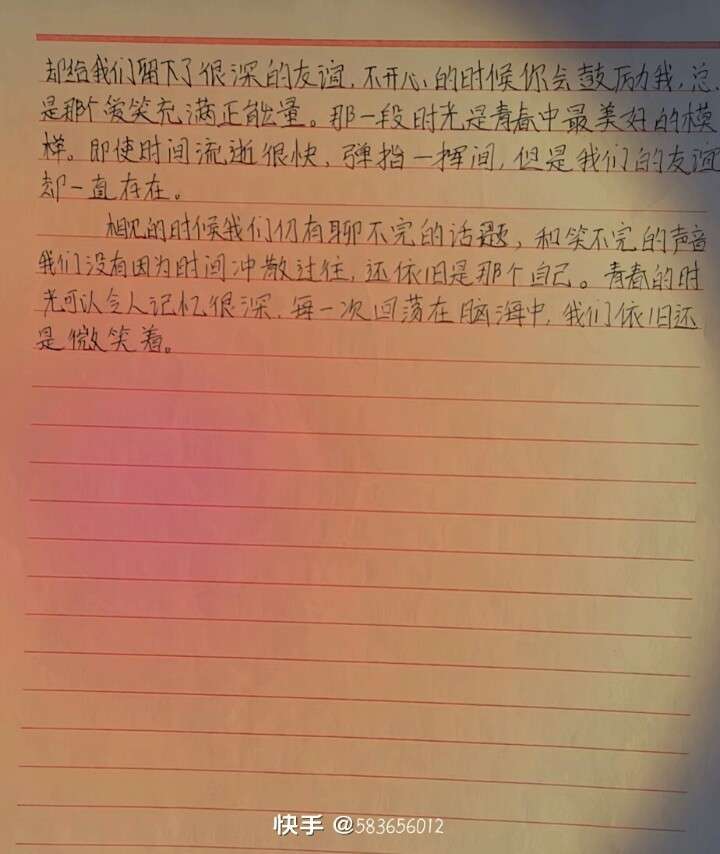 却给我们留下了很深的友谊,不开心的时候你会鼓厉力我,总
是那个爱笑充满正能量。那一段时光是青春中最美好的模
样。即使时间流逝很快,弹指一挥间,但是我们的友谊
却一直存在。
相见的时候我们仍有聊不完的话题,和笑不完的声音
我们没有因为时间冲散过往,还依旧是那个自己。青春的时
光可以令人记忆很深,每一次回荡在脑海中,我们依旧还
是微笑着。
快手 @583656012